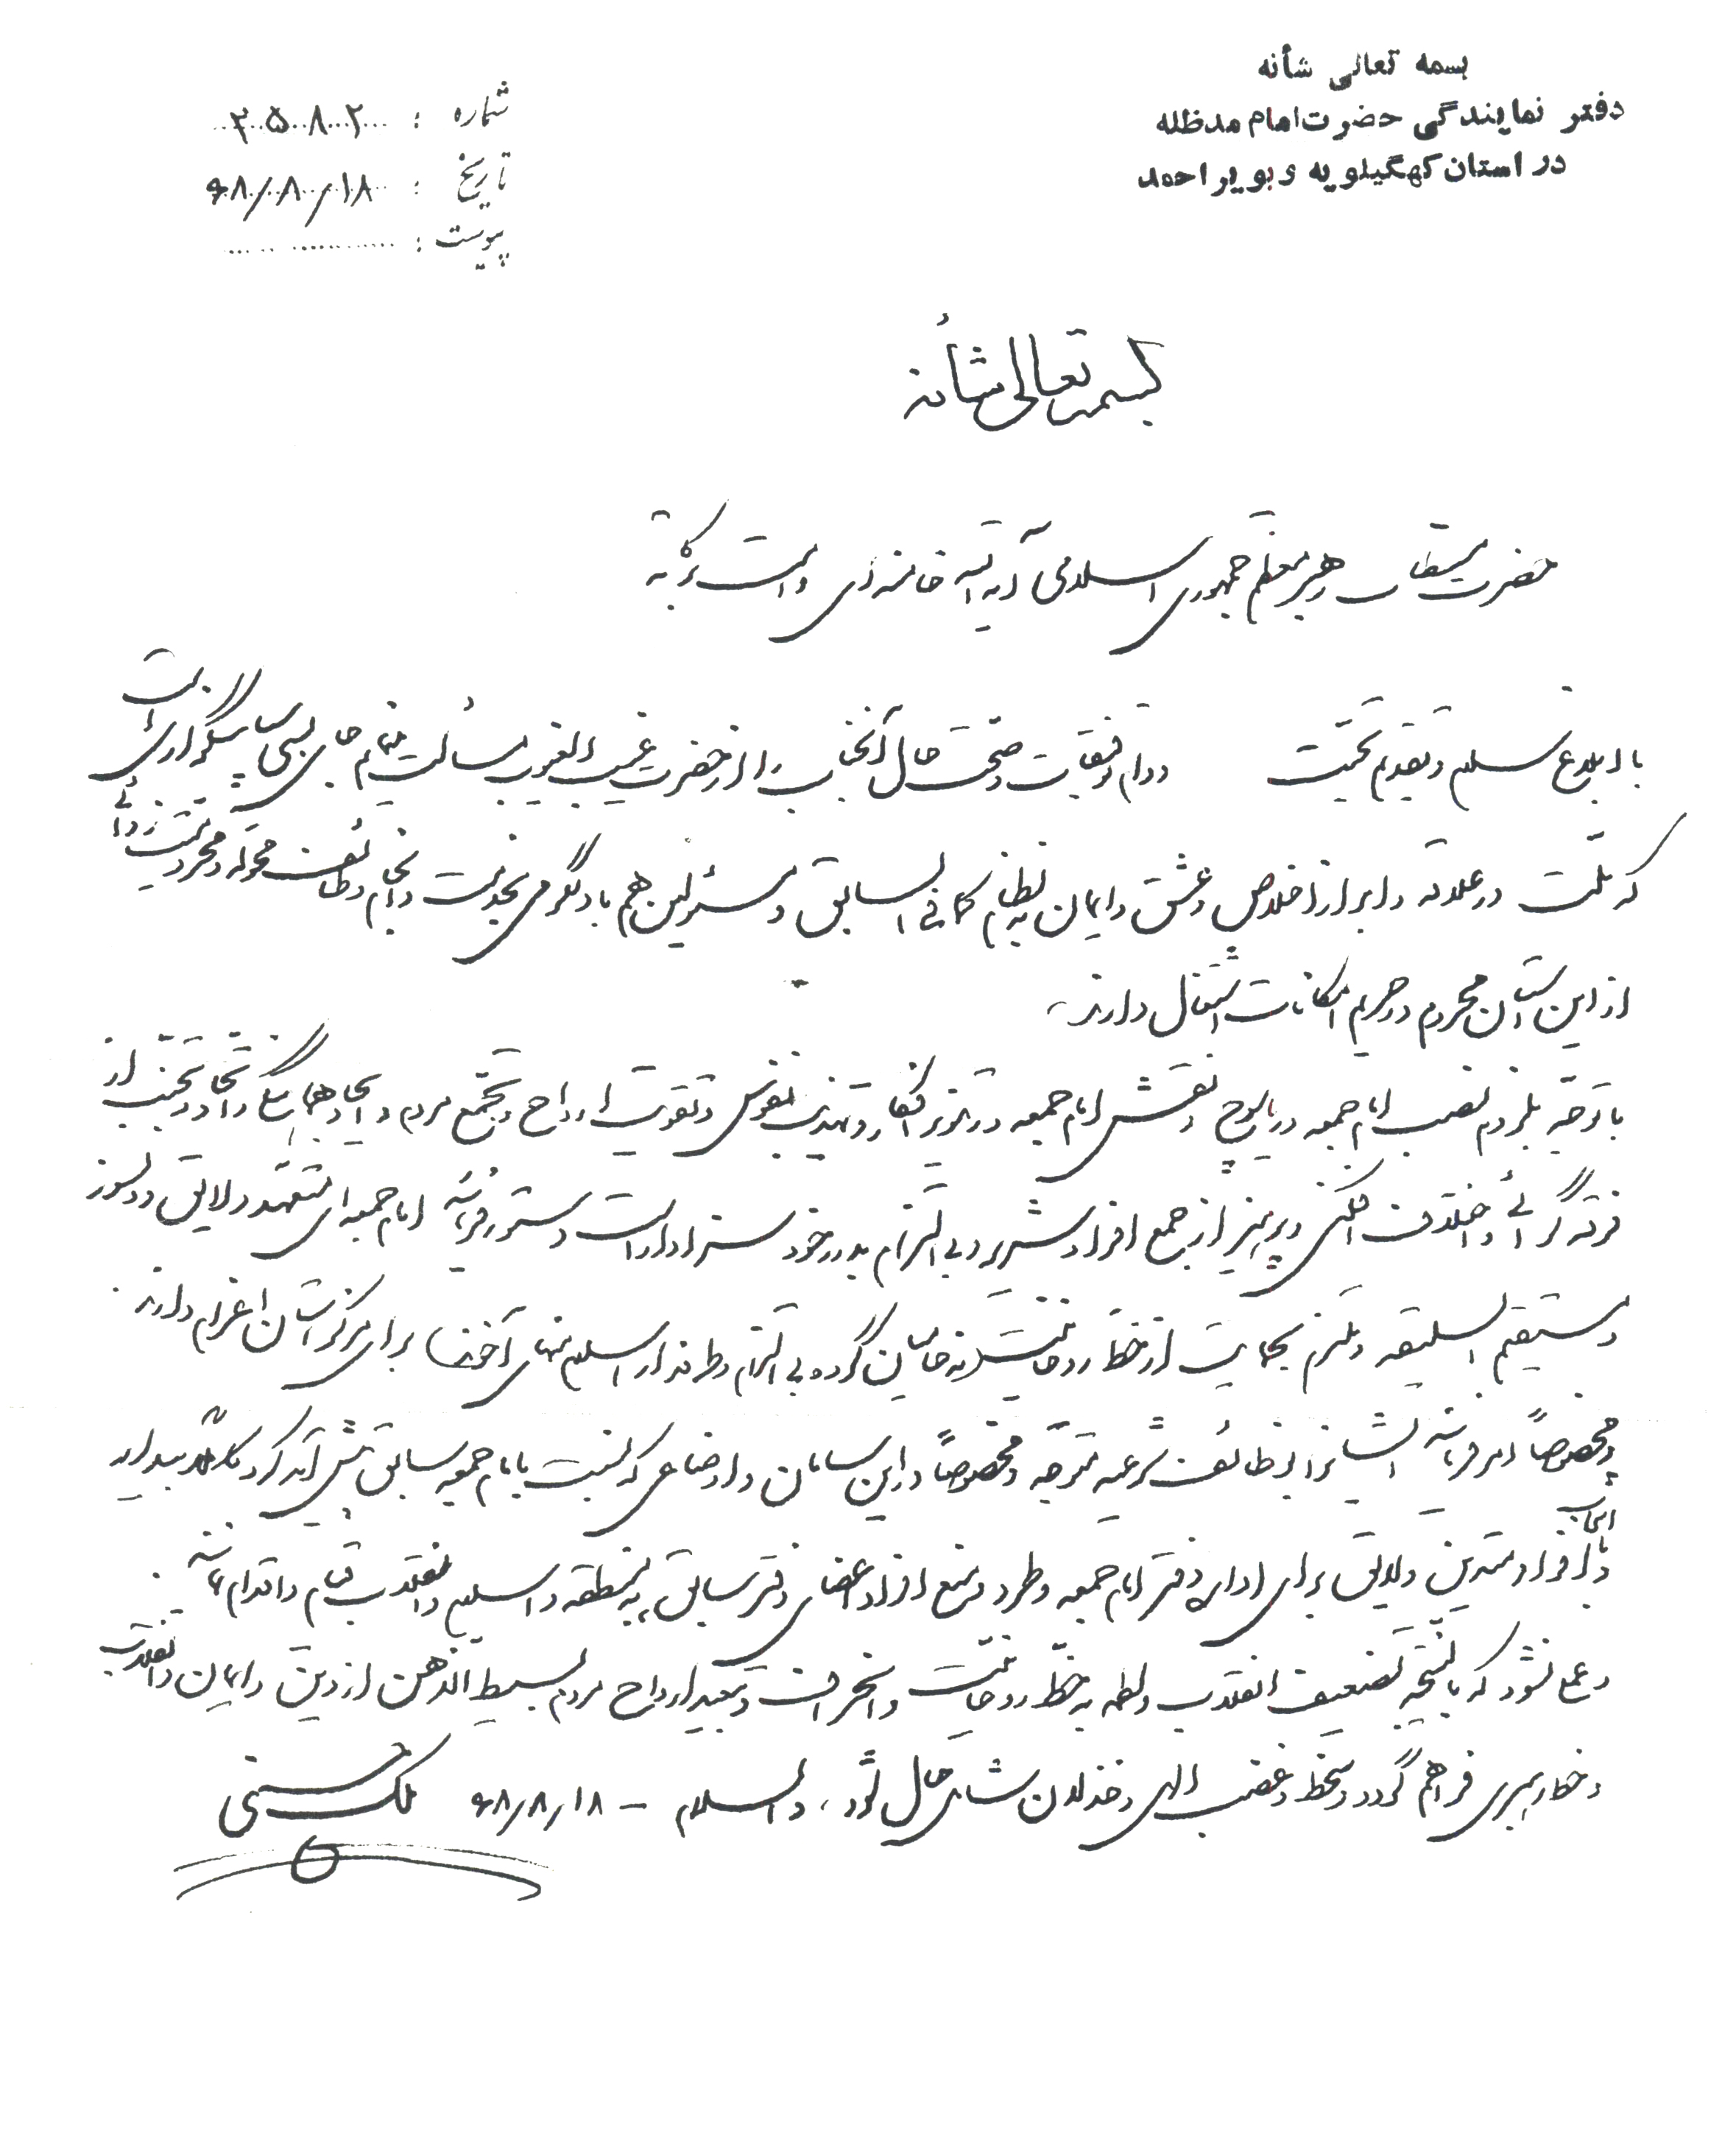 بسمه تعالی شأنه
دفتر نمایندگی حضرت امام مدظله
در استان کهگیلویه و بویراحمد
شماره : ۲۵۸۲
تاریخ : ۶۸/۸/۱۸
پیوست :
بسمه تعالی شأنه
حضرت مستطاب رهبر معظم جمهوری اسلامی آیة الله خامنه‌ای دامت برکاته
با ابلاغ سلام و تقدیم تحیت دوام توفیقات و صحت حال آنجناب را از حضرت غیب الغیوب مسألت مینمایم جای بسی سپاسگزاری است
که ملت در علاقه و ابراز اخلاص و عشق و ایمان به نظام کما فی السابق و مسئولین هم با دلگرمی بخدمت و انجام وظائف محوله و محرومیت زدائی
از این استان محروم در حریم امکانات اشتغال دارند،
با توجه بلزوم نصب امام جمعه در یاسوج و نقش امام جمعه در تنویر افکار و تهذیب نفوس و تقویت ارواح و تجمع مردم و ایجاد هماهنگی و اتحاد و تجنب از
فرقه گرائی و اختلاف افکنی و پرهیز از جمع افراد شرور و بی التزام بدور خود سزاوار است دستور فرمائید امام جمعه‌ای متعهد و لایق و دلسوز
و مستقیم السلیقه و ملزم بحمایت از خط روحانیت نه حامیان گروه بی التزام و طرفدار اسلام منهای آخوند برای مرکز استان اعزام دارند.
و مخصوصاً امر فرمائید ایشانرا بوظائف شرعیه متوجه و مخصوصاً در این سامان و اوضاعی که نسبت بامام جمعه سابق پیش آمد کرد کاملاً بیدار باشد
و با انتخاب افراد متدین و لایق برای اداره دفتر امام جمعه و طرد و منع افراد و اعضای دفتر سابق، به منطقه و اسلام و انقلاب قیام و اقدام نماید.
و عملی نشود که بالنتیجه تضعیف انقلاب و لطمه به خط روحانیت و انحراف و تبعید ارواح مردم بسیط الذهن از دین و ایمان و انقلاب
و خط رهبری فراهم گردد و سخط و غضب الهی و خذلان شامل حال شود، والسلام - ۶۸/۸/۱۸ ملک حسینی